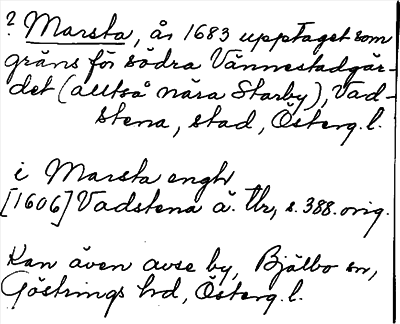 ? Marsta, år 1683 upptaget som
gräns för södra Vännestadgär-
det (alltså nära Starby), Vad-
stena, stad, Österg. l.
i Marsta enghr
[1606] Vadstena ä. Ur, s. 388. orig.
Kan även avse by, Bjälbo sn,
Göstrings hd, Österg. l.